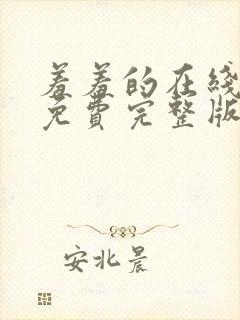 羞羞的在线
免費完整版
安北晨